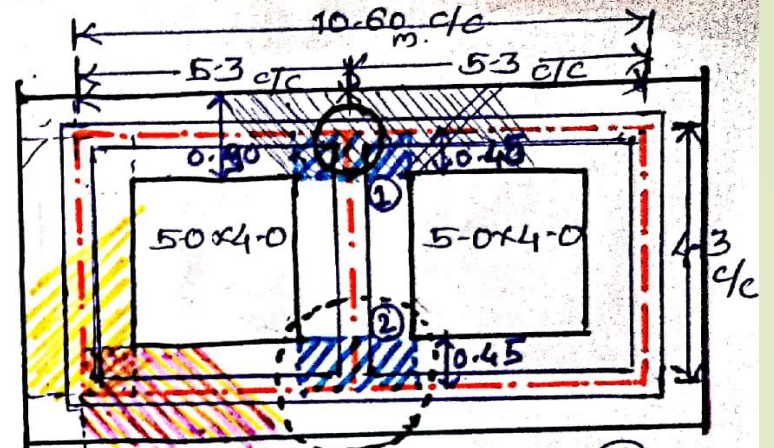 10.60 c/c
m.
5.3 c/c
5.3 c/c
0.90
0.45
①
5.0x4.0
5.0x4.0
4.3
c/c
②
0.45